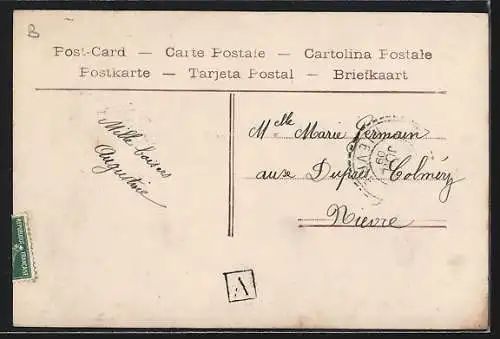 B
Post-Card — Carte Postale — Cartolina Postale
Postkarte — Tarjeta Postal — Briefkaart
Mille baisers
Augustine
Melle Marie Germain
aux Duprés Colméry
Nièvre
A